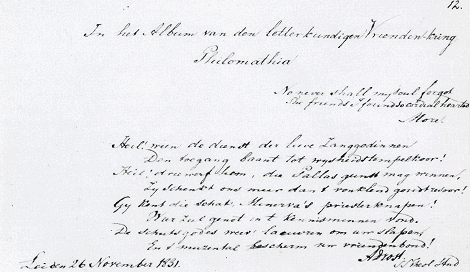 12.
In het Album van den letterkundigen Vriendenkring
Philomathia
No never shall my soul forget
The friends I found so cordial hearted
More.
Heil! wien de dienst der lieve Zanggodinnen
Den toegang baant tot wijsheids tempelkoor!
Heil! douwerf hem, die Pallas gunst mag winnen,
Zij schenkt ons meer dan 't ronklend goudtrezoor!
Gij kent die schat: Minerva's priesterknapen!
Wier ziel genot in 't kunstminnen vond.
De schutsgodes weev' lauweren om uw slapen,
En 't muzental bescherm uw vriendenbond!
Leiden 26 November 1831.